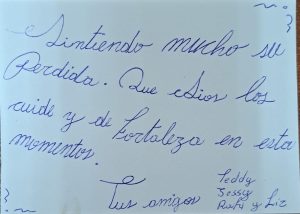 Sintiendo mucho su
Perdida. Que Dios los
cuide y de fortaleza en esta
momentos.
Tus amigos
Teddy
Jessy
Rafy y Liz